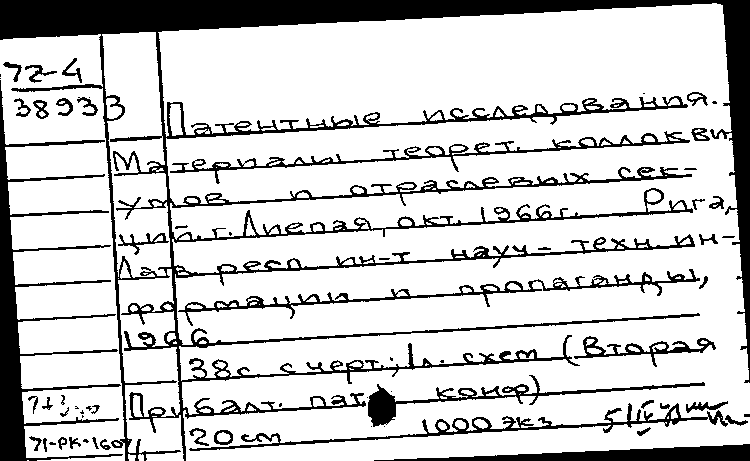 72-4
38933
Патентные исследования.
Материалы теорет. коллокви-
умов и отраслевых сек-
ций. г. Лиепая, окт. 1966г. Рига,
Латв. респ. ин-т науч.-техн. ин-
формации и пропаганды,
1966.
38с. с черт.; 1л. схем (Вторая
Прибалт. пат. конф)
20см 1000 экз.